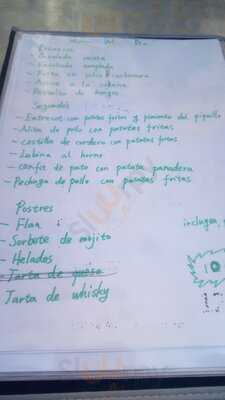 Menu del Dia
Primeros
- Ensalada mixta
- Ensalada
- Pasta en salsa carbonara
- Arroz a la cubana
- Revuelto de hongos
Segundos
- Entrecot con patatas fritas y pimiento del piquillo
- Alitas de pollo con patatas fritas
- costilla de cordero con patatas fritas
- Lubina al horno
- confit de pato con patatas panadera
- Pechuga de pollo con patatas fritas
Postres
- Flan
incluyen
- Sorbete de mojito
- Helados
- Tarta de queso
10
Tarta de whisky
Sluurpy